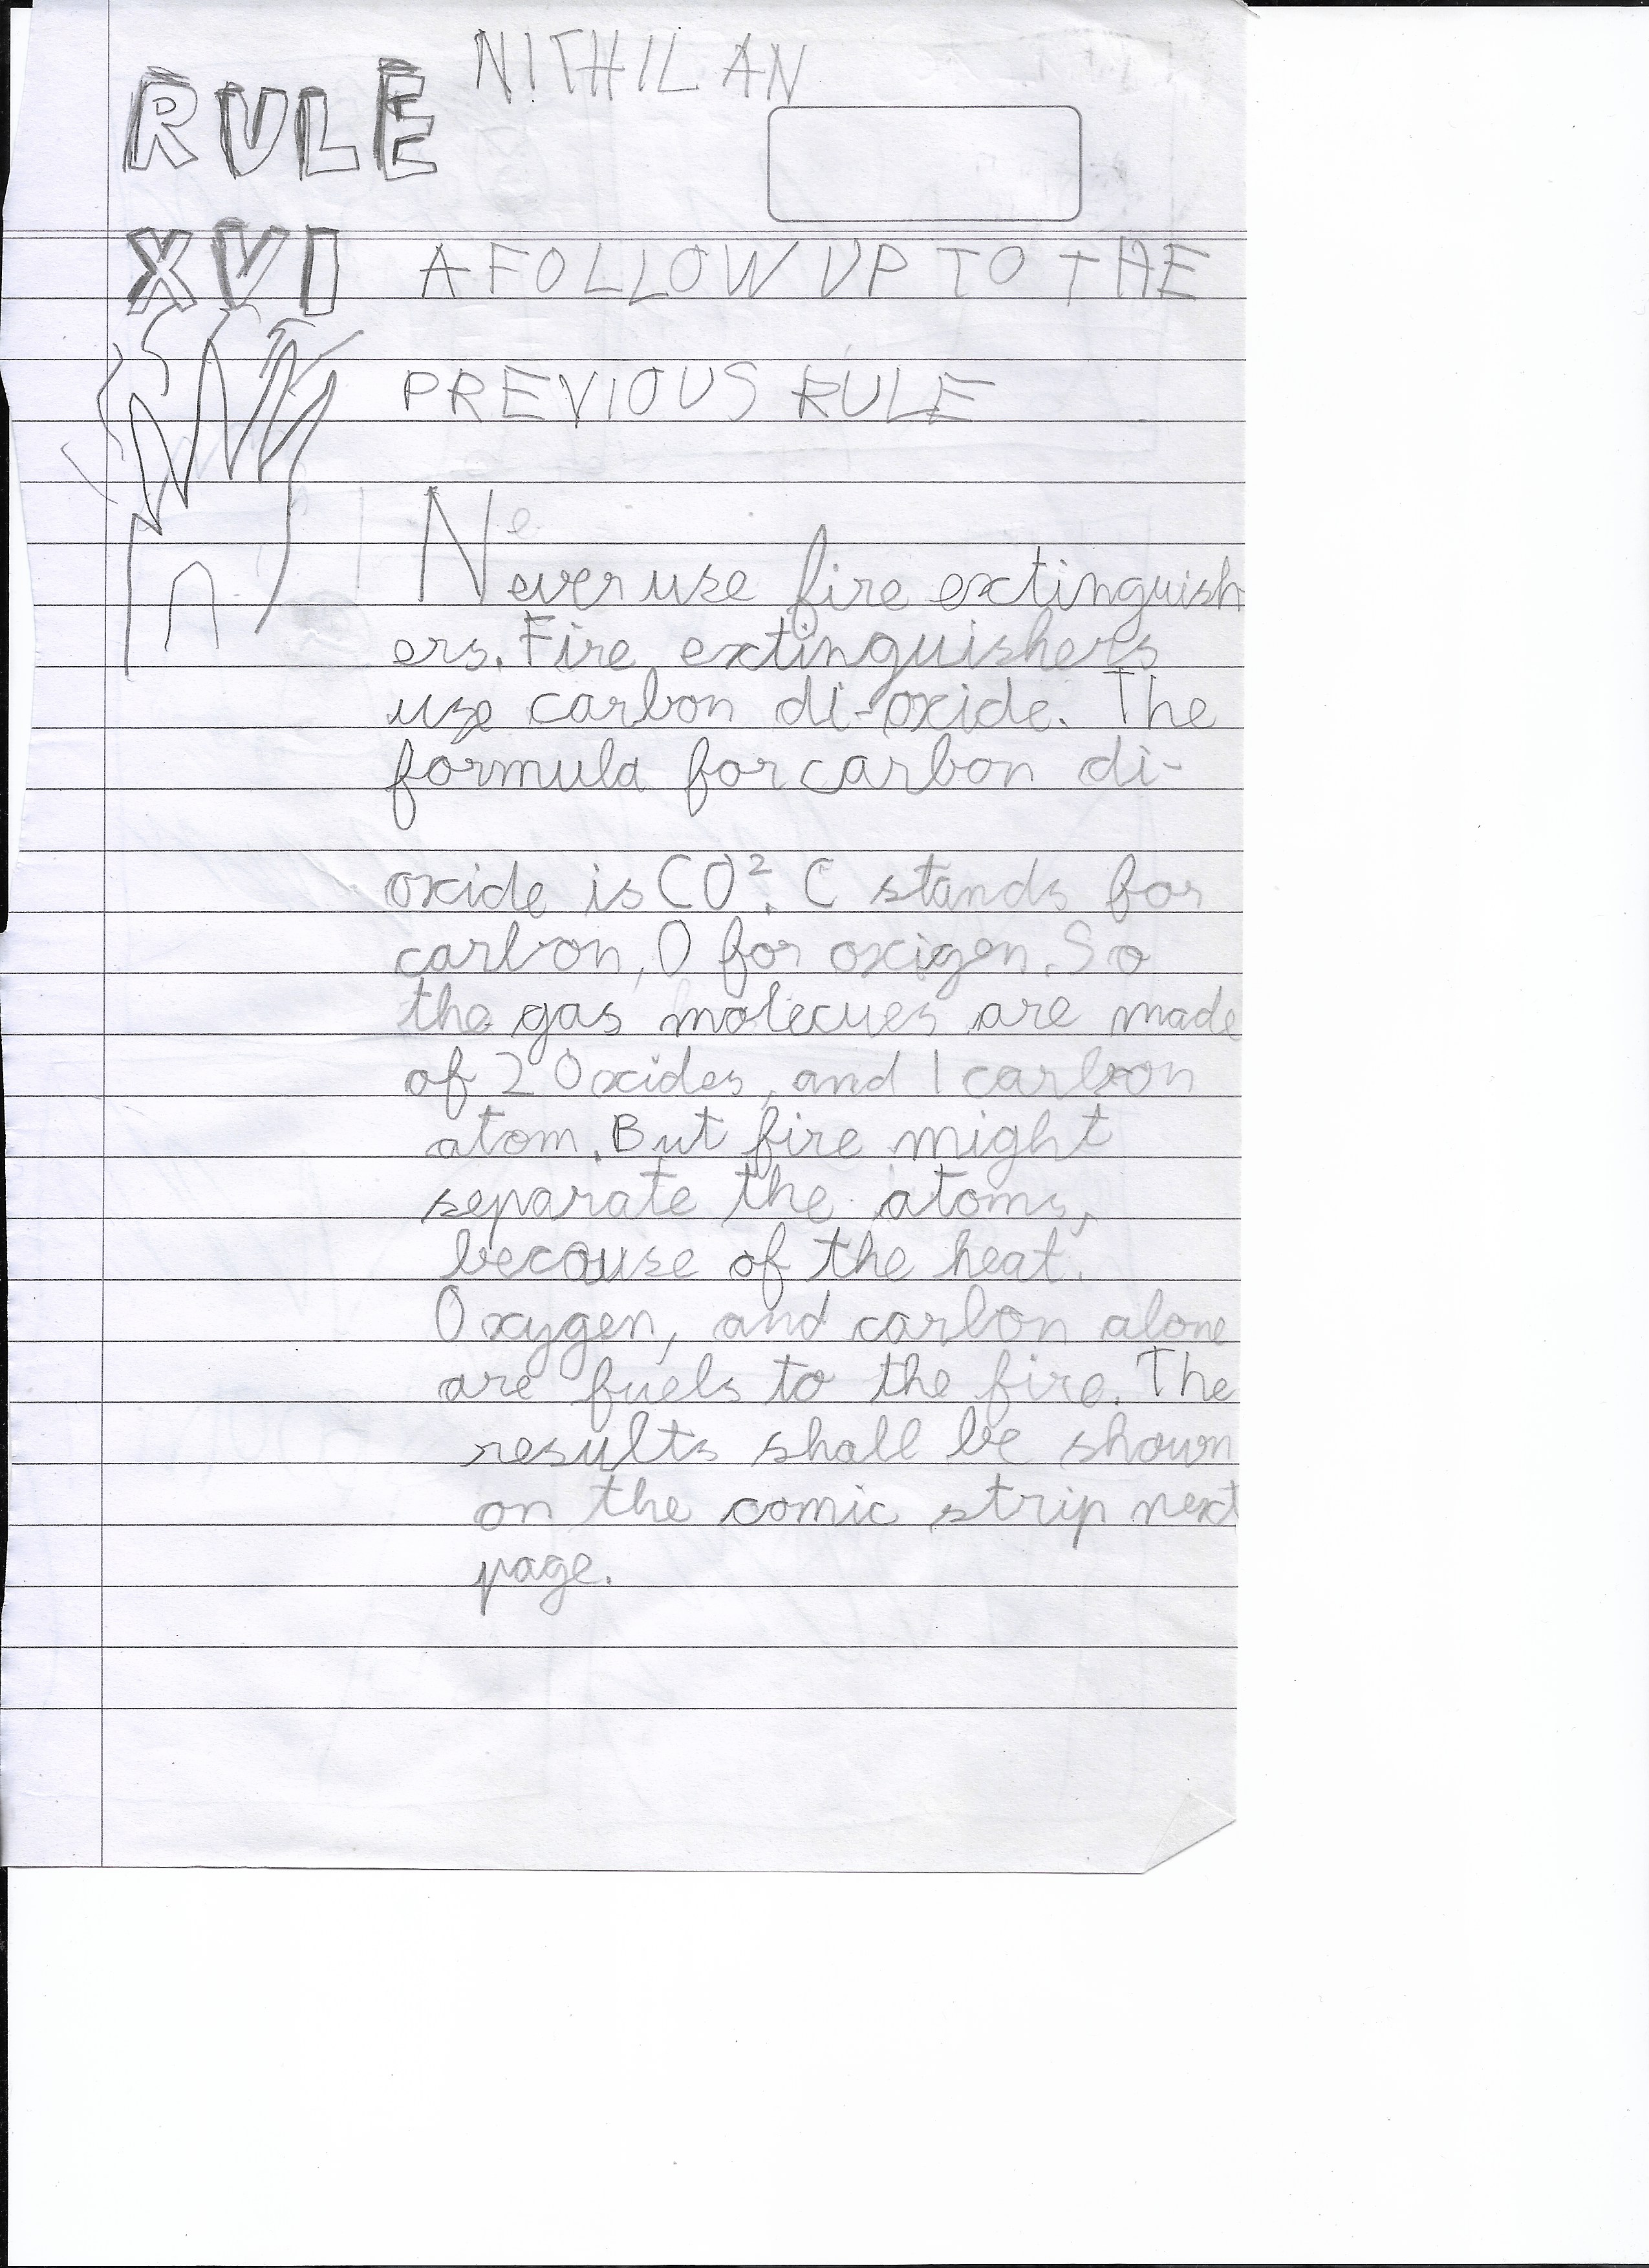 NITHILAN
RULE
XVI A FOLLOW UP TO THE
PREVIOUS RULE
Ne
ever use fire extinguish
ers. Fire extinguishers
use carbon di-oxide. The
formula for carbon di-
oxide is CO². C stands for
carbon, O for oxigen. So
the gas molecues are made
of 2 Oxides, and 1 carbon
atom. But fire might
separate the atoms,
because of the heat.
Oxygen, and carbon alone
are fuels to the fire. The
results shall be shown
on the comic strip next
page.